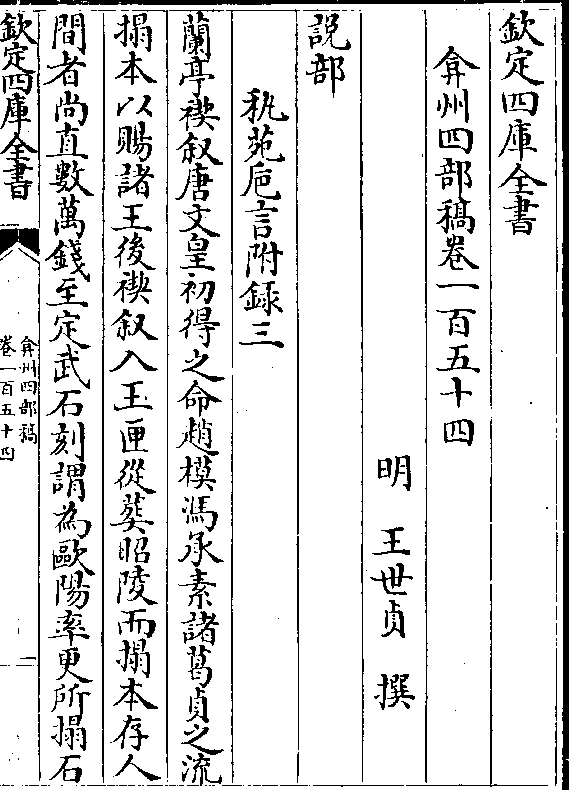 欽定四庫全書
弇州四部稿卷一百五十四
明 王世貞 撰
說部
秇苑巵言附録三
蘭亭禊叙唐文皇初得之命趙模馮承素諸葛貞之流
搨本以賜諸王後禊叙入玉匣從葬昭陵而搨本存人
間者尚直數萬錢至定武石刻謂為歐陽率更所搨石
欽定四庫全書
弇州四部稿
卷一百五十四
一